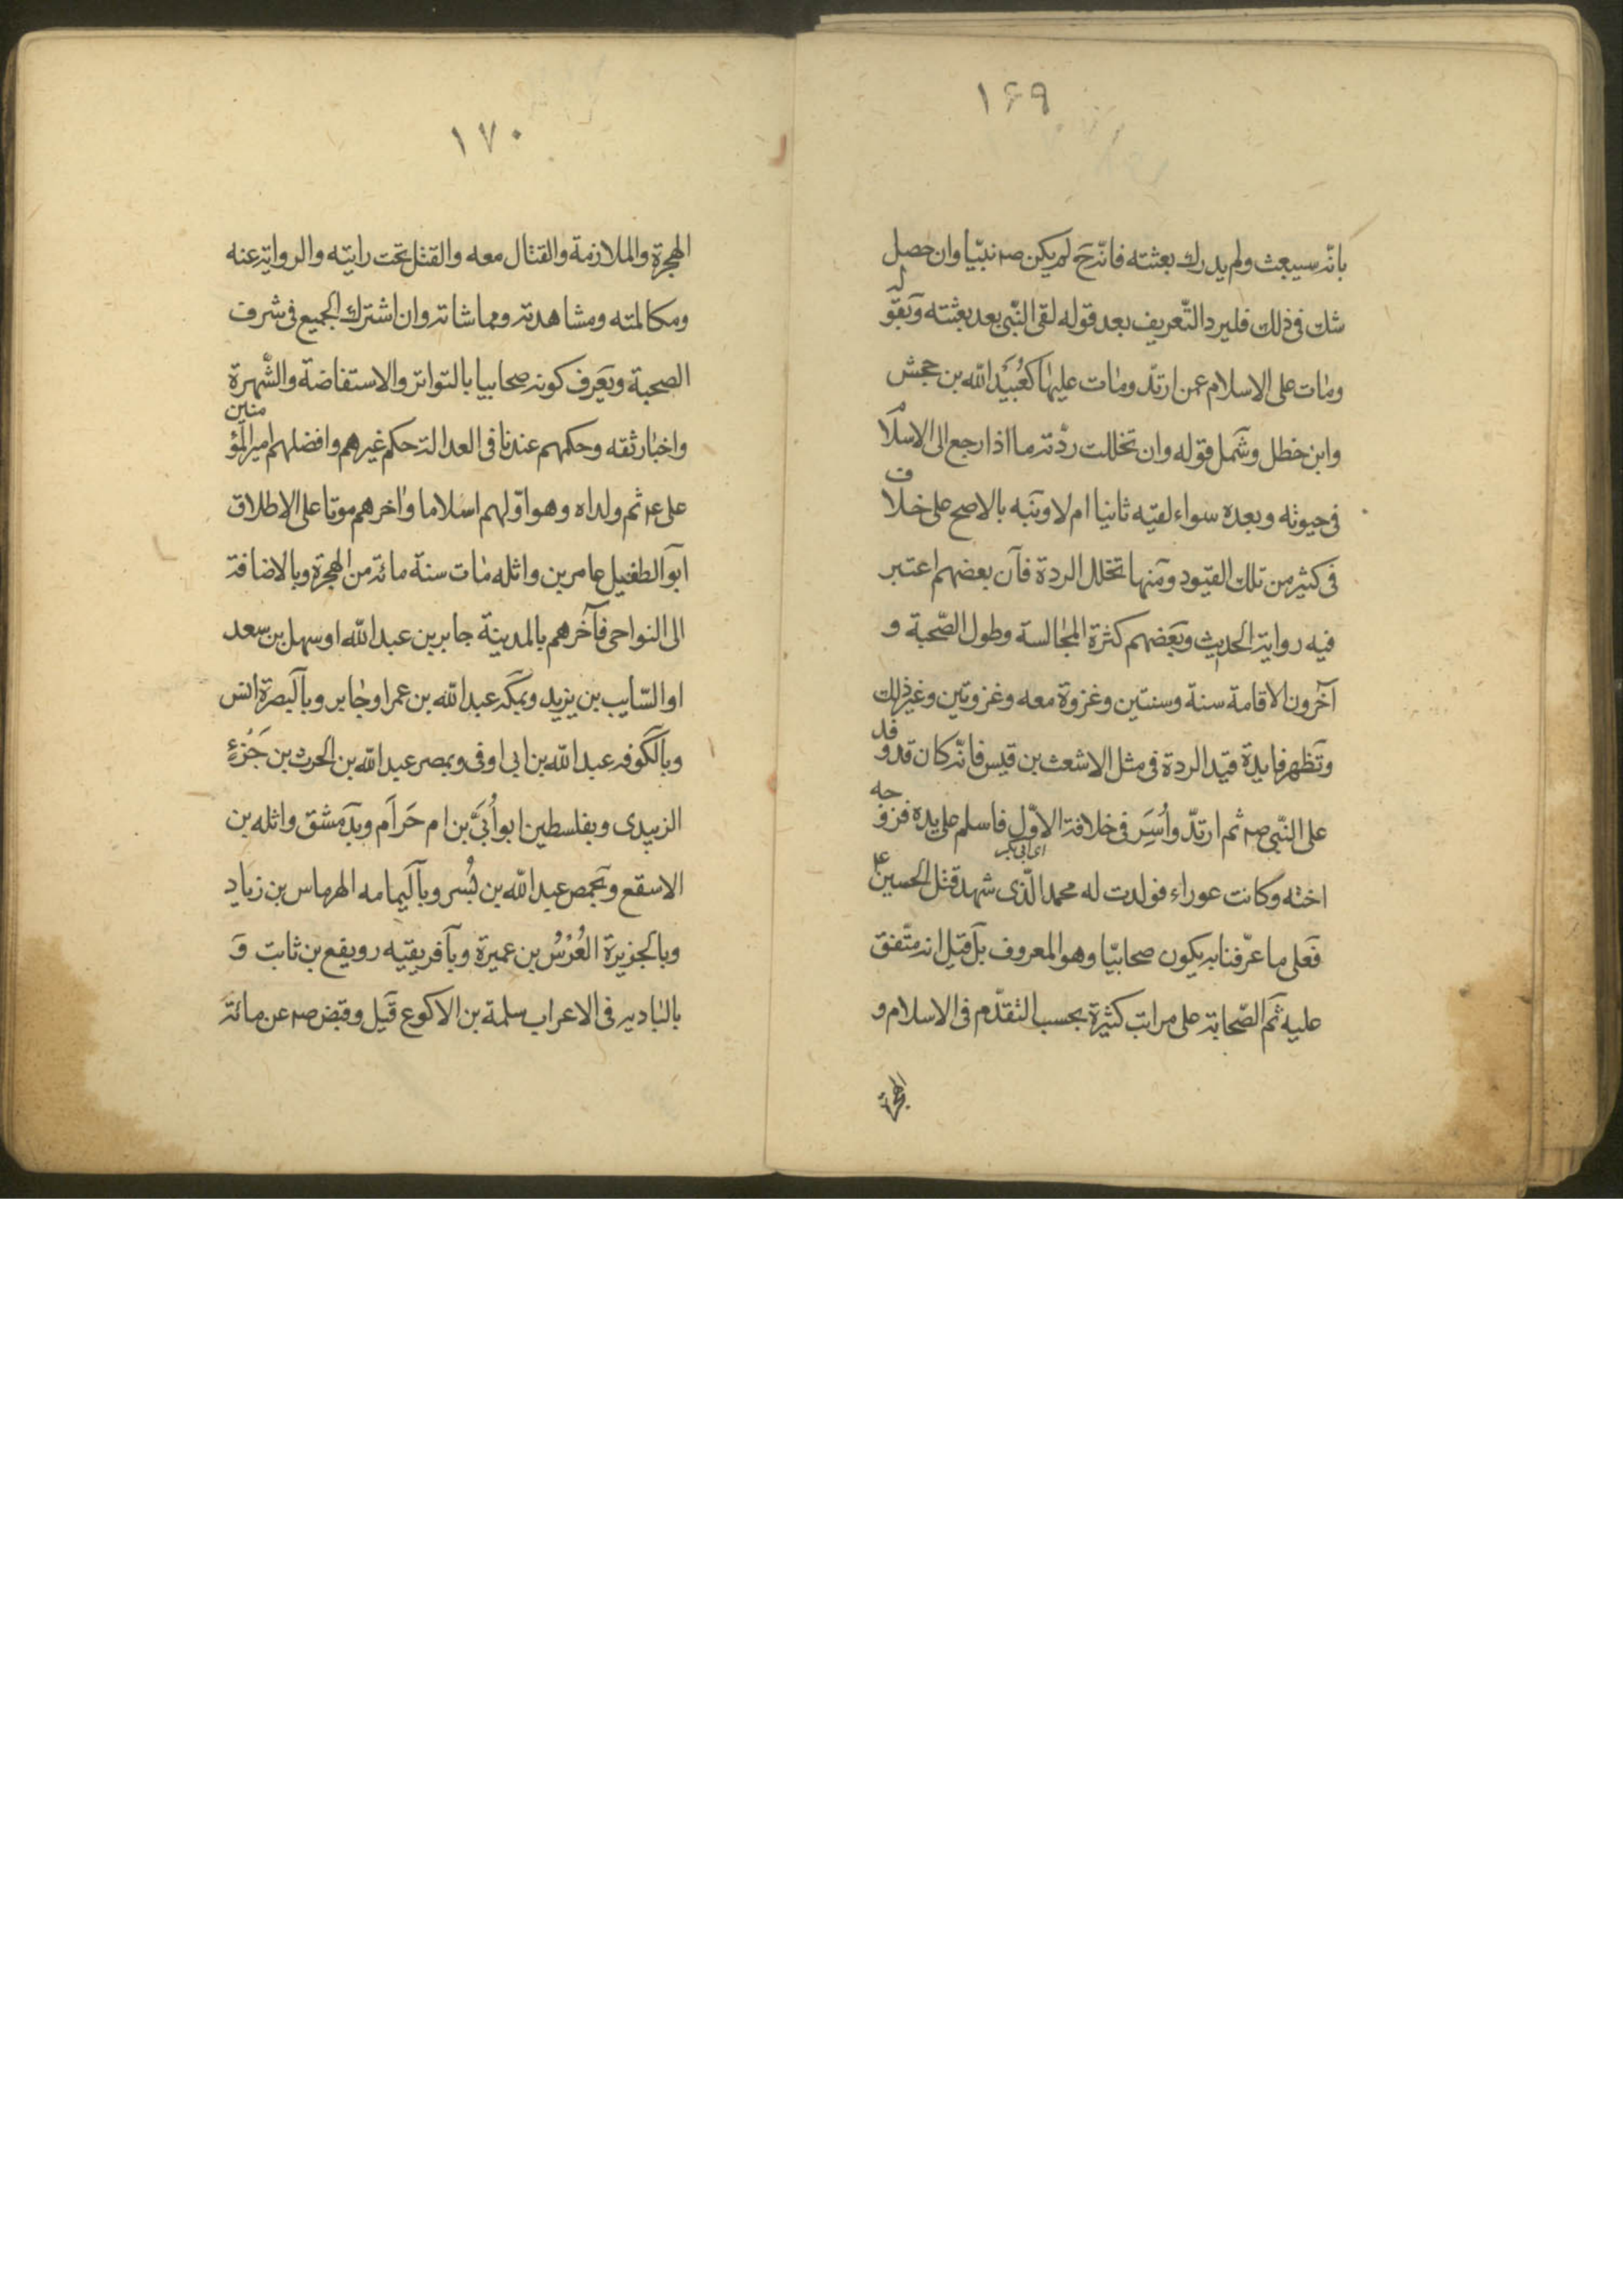 ١۶٩
بانه سيبعث ولم يدرك بعثته فانّه ح لم يكن ص نبيّا وان حصل
شك فى ذلك فليرد التّعريف بعد قوله لقى النّبى بعد بعثته وبقوله
ومات على الاسلام عمن ارتدّ ومات عليها كعُبَيدالله بن جحش
وابن خطل وشمل قوله وان تخللت ردّته ما اذا رجع الى الاسلام
فى حيوته وبعده سواء لقيّه ثانيا ام لا ونبّه بالاصح على خلاف
فى كثير من تلك القيود ومنها تخلل الردة فان بعضهم اعتبر
فيه رواية الحديث وبعضهم كثرة المجالسة وطول الصّحبة و
آخرون الاقامة سنة وسنتين وغزوة معه وغزوتين وغير ذلك
وتظهر فايدة قيد الردة فى مثل الاشعث بن قيس فانّه كان قد وفد
على النّبى ص ثم ارتدّ واُسِر فى خلافة الاوّل فاسلم على يده فزوّجه
اى ابى بكر
اخته وكانت عوراء فولدت له محمد الّذى شهد قتل الحسين ع
فعلى ما عرّفنا به يكون صحابيّا وهو المعروف بل قيل انه متّفق
عليه ثم الصّحابة على مراتب كثيرة بحسب التقدّم فى الاسلام و
الهجرة
١٧٠
الهجرة والملازمة والقتال معه والقتل تحت رايته والرواية عنه
ومكالمته ومشاهدته ومماشاته وان اشترك الجميع فى شرف
الصحبة ويعرف كونه صحابيا بالتواتر والاستفاضة والشّهرة
واخبار ثقه وحكمهم عندنا فى العدالة حكم غيرهم وافضلهم امير المؤمنين
على ع ثم ولداه وهو اوّلهم اسلاما واخرهم موتا على الاطلاق
ابو الطفيل عامر بن واثله مات سنة مائة من الهجرة وبالاضافة
الى النواحى فآخرهم بالمدينة جابر بن عبدالله او سهل بن سعد
او السّايب بن يزيد وبمكه عبدالله بن عمر او جابر وبالبصرة انس
وبالكوفه عبدالله بن ابى اوفى وبمصر عبدالله بن الحرث بن جَزْءٍ
الزبيدى وبفلسطين ابو اُبَىّ بن ام حَرام وبدمشق واثله بن
الاسقع وبحمص عبدالله بن بُسر وباليمامه الهرماس بن زياد
وبالجزيرة العُرْسُ بن عميرة وبافريقيه رويفع بن ثابت وَ
بالباديه فى الاعراب سلمة بن الاكوع قيل وقبض ص عن مائة